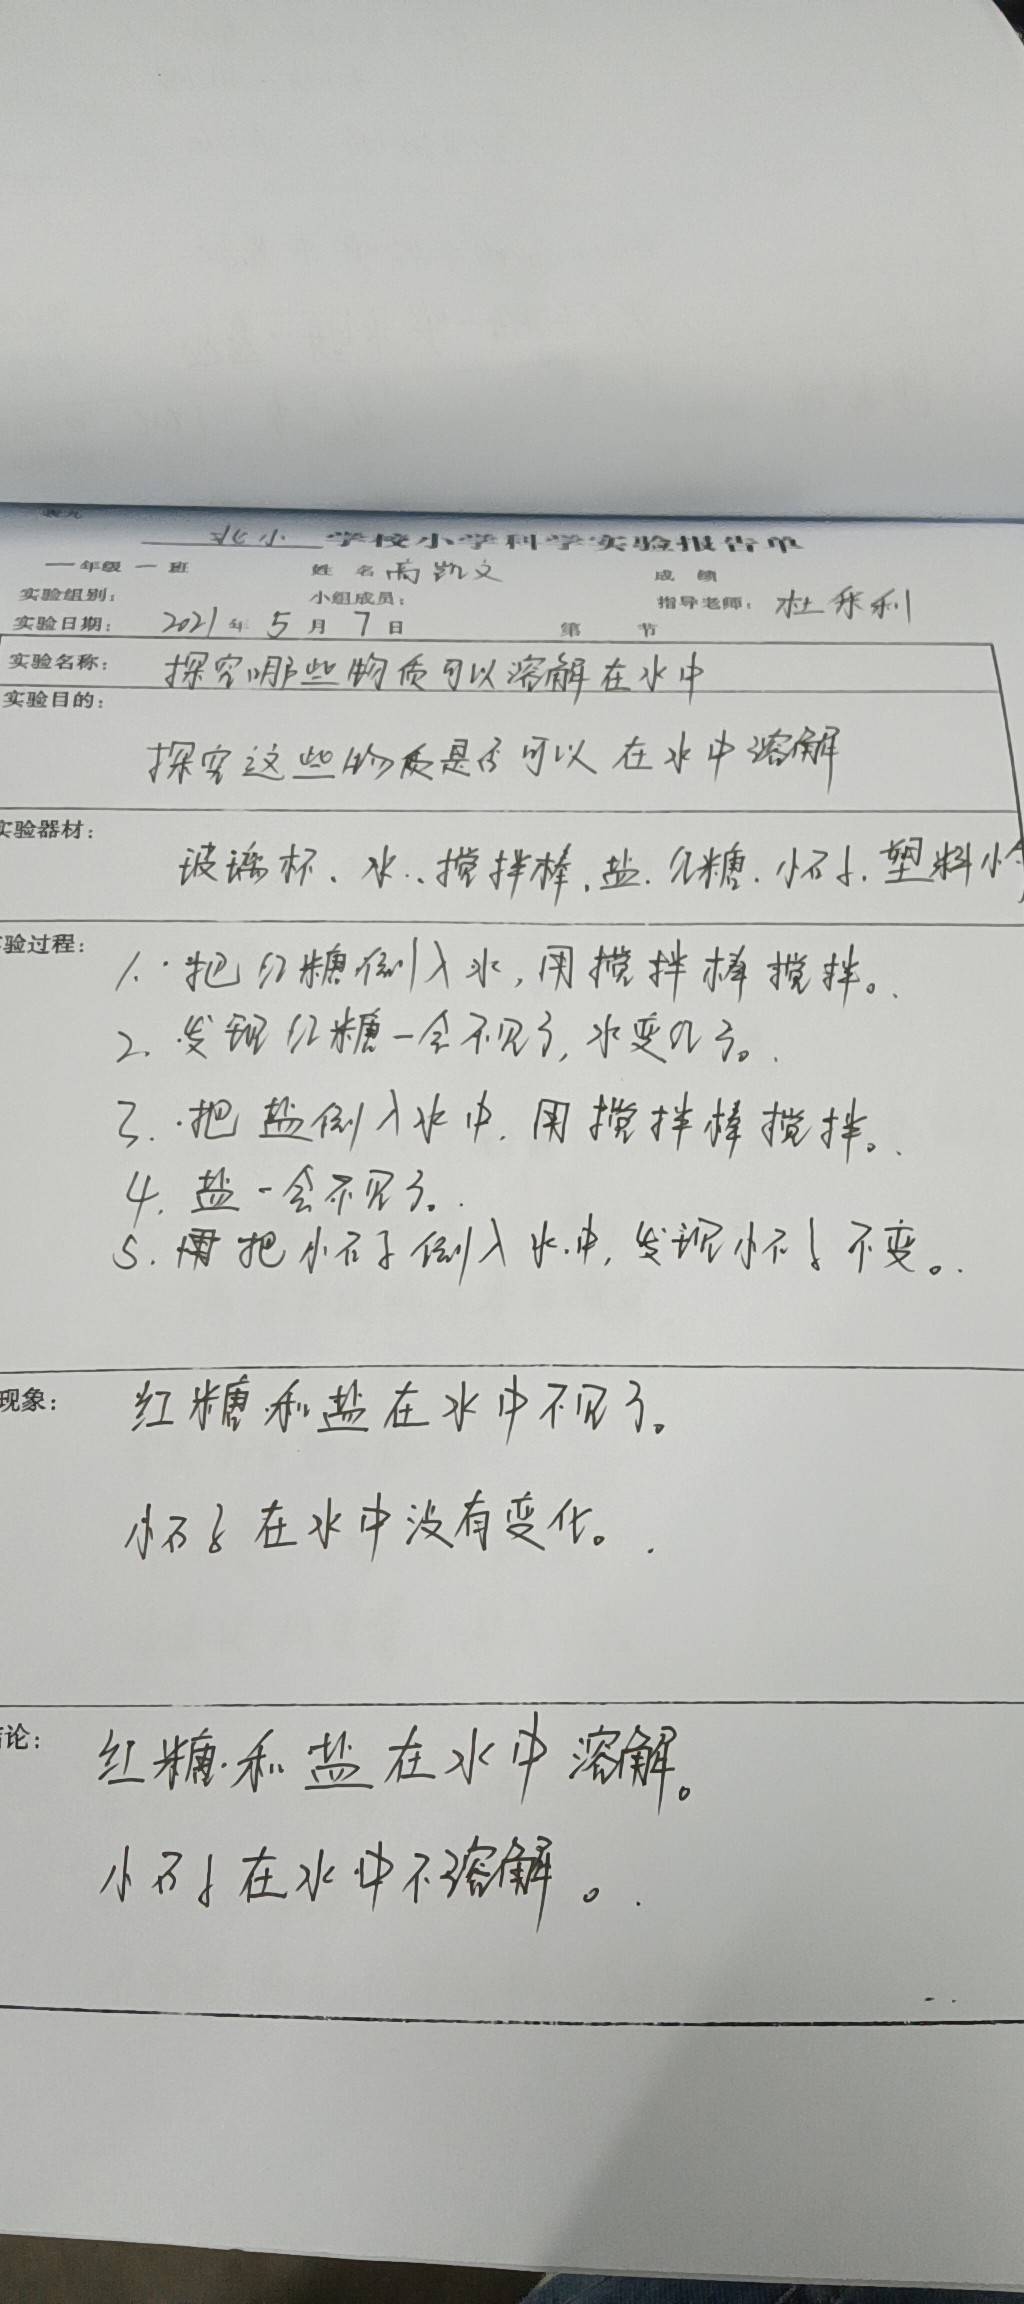 表九
北小 学校小学科学实验报告单
一年级 一 班 姓 名 高凯文 成 绩
实验组别： 小组成员： 指导老师： 杜

实验日期： 2021 年 5 月 7 日 第 节
实验名称： 探究哪些物质可以溶解在水中
实验目的：
探究这些物质是否可以在水中溶解
实验器材：
玻璃杯、水、搅拌棒、盐、红糖、小石子、塑料小
验过程：
1. 把红糖倒入水,用搅拌棒搅拌。
2. 发现红糖一会不见了,水变红了。
3. 把盐倒入水中,用搅拌棒搅拌。
4. 盐一会不见了。
5. 再把小石子倒入水中,发现小石子不变。
现象： 红糖和盐在水中不见了。
小石子在水中没有变化。
论： 红糖和盐在水中溶解。
小石子在水中不溶解。